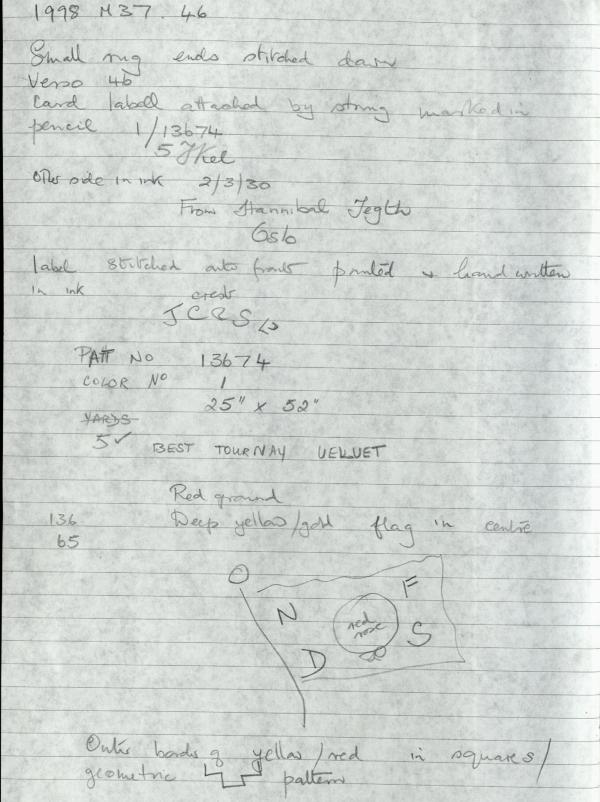 1998 M37. 46
Small rug ends stitched down
Verso 46
Card labell attached by string marked in
pencil 1/13674
5
Other side in ink 2/3/30
From Hannibal
label stitched onto front printed & hand written
in ink
crest
JCRS
PATT NO 13674
COLOR NO 1
25" x 52"
YARDS
5✓ BEST TOURNAY VELVET
Red ground
136 Deep yellow/gold flag in centre
65
N F
red
rose S
D
Outer bords of yellow/red in squares/
geometric pattern